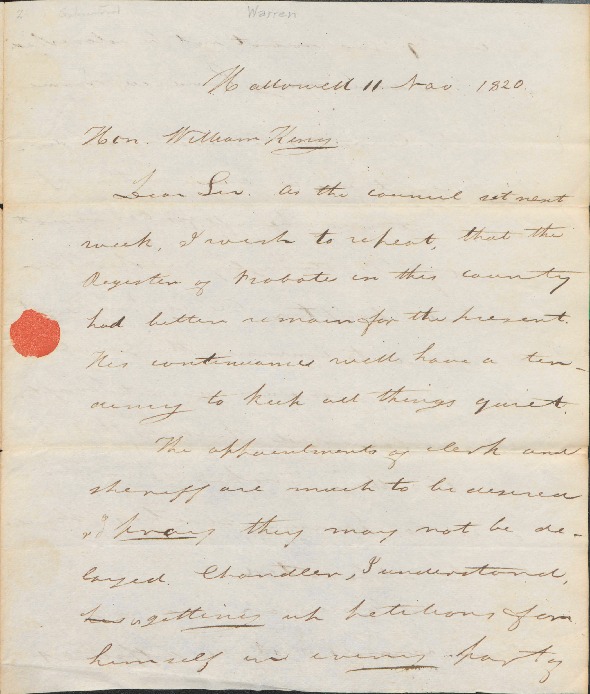 Warren
Hallowell 11. Nov. 1820.
Hon. William King.
Dear Sir. As the council sit next
week, I wish to repeat, that the
Register of Probate in this county
had better remain for the present.
His continuance will have a ten-
dency to keep all things quiet.
The appointments of clerk and
sheriff are much to be desired
& I pray they may not be de-
layed. Chandler, I understand,
is getting up petitions for
himself in every part of